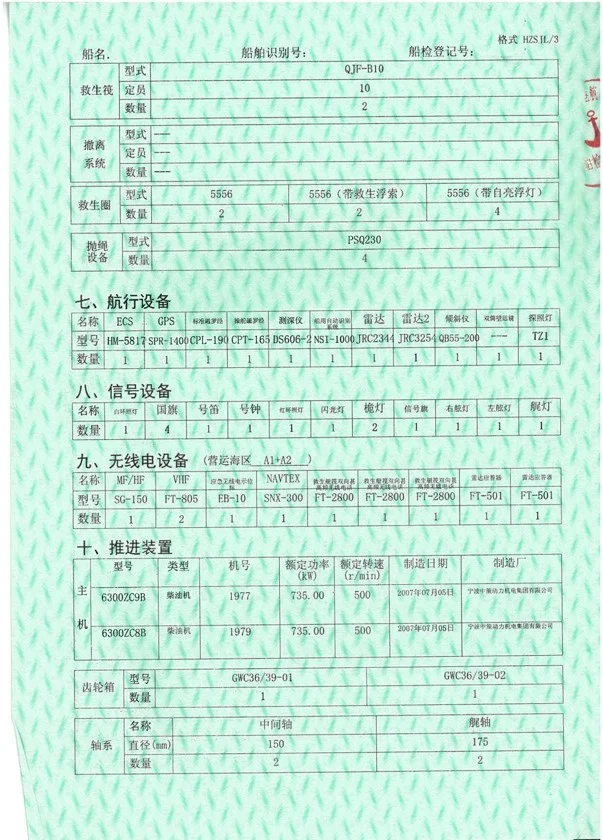 格式 HZS1L/3
船名. 船舶识别号: 船检登记号:
救生筏 型式 QJF-B10
定员 10
数量 2
撤离系统 型式 ---
定员 ---
数量 ---
救生圈 型式 5556 5556（带救生浮索） 5556（带自亮浮灯）
数量 2 2 4
抛绳设备 型式 PSQ230
数量 4
七、航行设备
名称 ECS GPS 标准磁罗经 操舵磁罗经 测深仪 船用自动识别系统 雷达 雷达2 倾斜仪 双筒望远镜 探照灯
型号 HM-5817 SPR-1400 CPL-190 CPT-165 DS606-2 NSI-1000 JRC2344 JRC3254 QB55-200 --- TZ1
数量 1 1 1 1 1 1 1 1 1 1 1
八、信号设备
名称 白环照灯 国旗 号笛 号钟 红环照灯 闪光灯 桅灯 信号旗 右舷灯 左舷灯 艉灯
数量 1 4 1 1 1 1 2 1 1 1 1
九、无线电设备 (营运海区 A1+A2 )
名称 MF/HF VHF 应急无线电示位标 NAVTEX 救生艇筏双向甚高频无线电话 救生艇筏双向甚高频无线电话 救生艇筏双向甚高频无线电话 雷达应答器 雷达应答器
型号 SG-150 FT-805 EB-10 SNX-300 FT-2800 FT-2800 FT-2800 FT-501 FT-501
数量 1 2 1 1 1 1 1 1 1
十、推进装置
主机 型号 类型 机号 额定功率(kW) 额定转速(r/min) 制造日期 制造厂
6300ZC9B 柴油机 1977 735.00 500 2007年07月05日 宁波中策动力机电集团有限公司
6300ZC8B 柴油机 1979 735.00 500 2007年07月05日 宁波中策动力机电集团有限公司
齿轮箱 型号 GWC36/39-01 GWC36/39-02
数量 1 1
轴系 名称 中间轴 艉轴
直径(mm) 150 175
数量 2 2